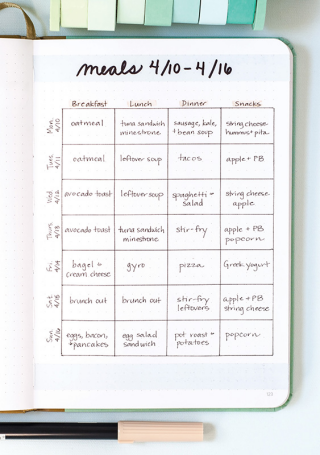 meals 4/10-4/16
Breakfast Lunch Dinner Snacks
Mon 4/10
oatmeal
tuna sandwich
minestrone
sausage, kale,
+ bean soup
string cheese
hummus + pita
Tues 4/11
oatmeal
leftover soup
tacos
apple + PB
Wed 4/12
avocado toast
leftover soup
spaghetti +
salad
string cheese
apple
Thurs 4/13
avocado toast
tuna sandwich
minestrone
stir-fry
apple + PB
popcorn
Fri 4/14
bagel +
cream cheese
gyro
pizza
Greek yogurt
Sat 4/15
brunch out
brunch out
stir-fry
leftovers
apple + PB
string cheese
Sun 4/16
eggs, bacon,
+ pancakes
egg salad
sandwich
pot roast +
potatoes
popcorn